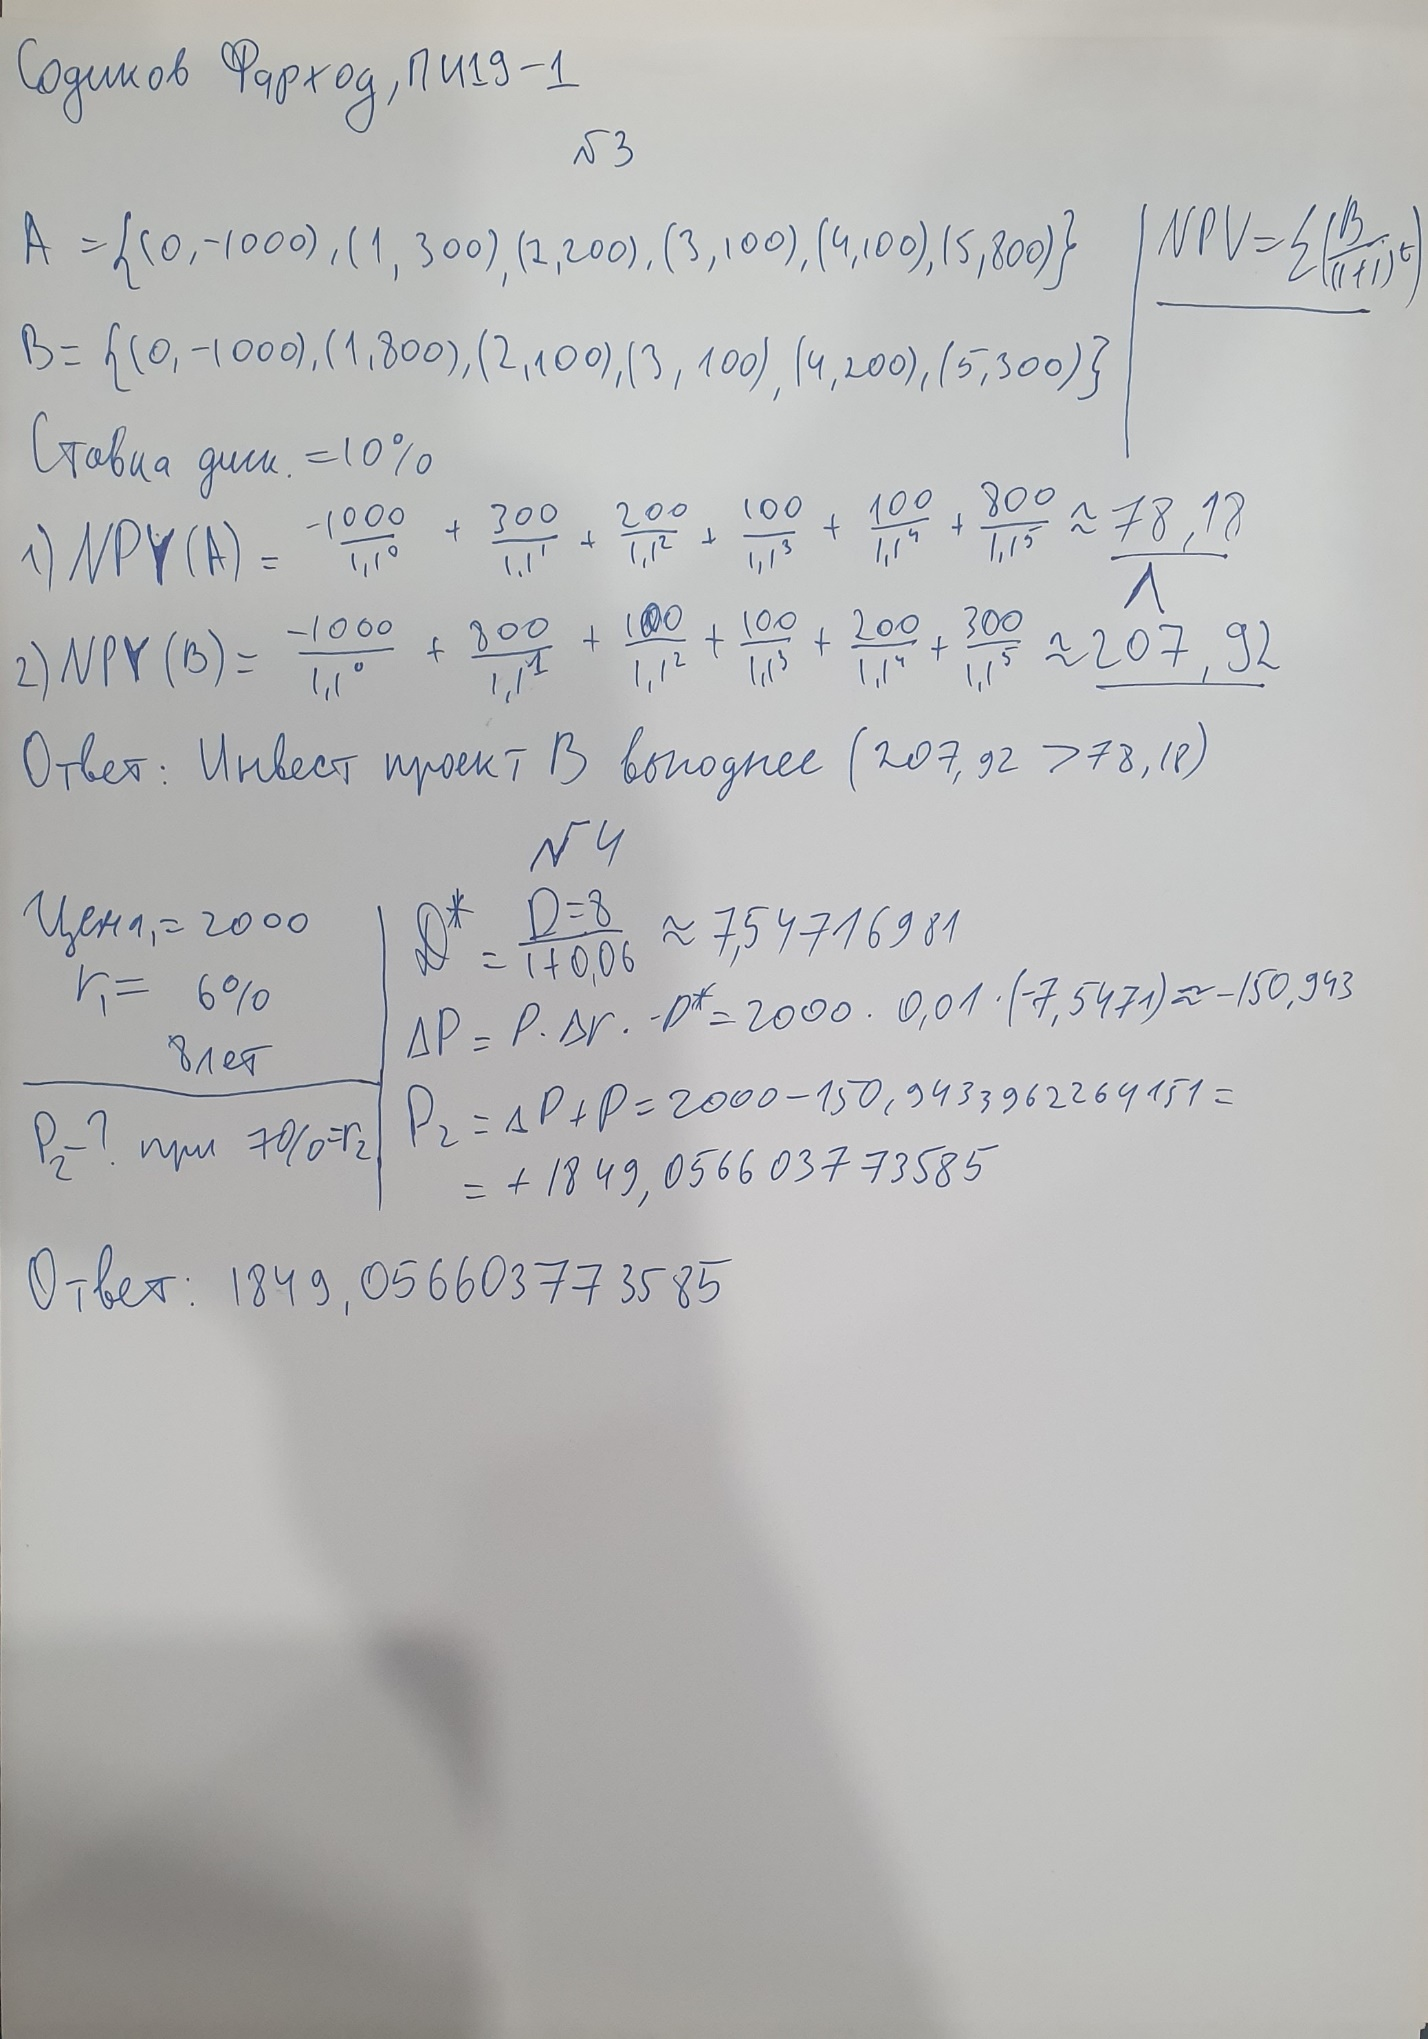 Содиков Фарход, ПИ19-1
№3
A = {(0,-1000), (1, 300), (2,200), (3,100), (4,100), (5,800)}
NPV = Σ(B/(1+i)^t)
B = {(0,-1000), (1,800), (2,100), (3, 100), (4,200), (5,300)}
Ставка диск. = 10%
1) NPV(A) = -1000/1,1^0 + 300/1,1^1 + 200/1,1^2 + 100/1,1^3 + 100/1,1^4 + 800/1,1^5 ≈ 78,18
Λ
2) NPV(B) = -1000/1,1^0 + 800/1,1^1 + 100/1,1^2 + 100/1,1^3 + 200/1,1^4 + 300/1,1^5 ≈ 207,92
Ответ: Инвест проект B выгоднее (207,92 > 78,18)
№4
Цена₁ = 2000
r₁ = 6%
8 лет
P₂-? при 7%=r₂
D* = D=8/1+0,06 ≈ 7,54716981
ΔP = P · Δr · -D* = 2000 · 0,01 · (-7,5471) ≈ -150,943
P₂ = ΔP + P = 2000 - 150,9433962264151 =
= + 1849,056603773585
Ответ: 1849,056603773585